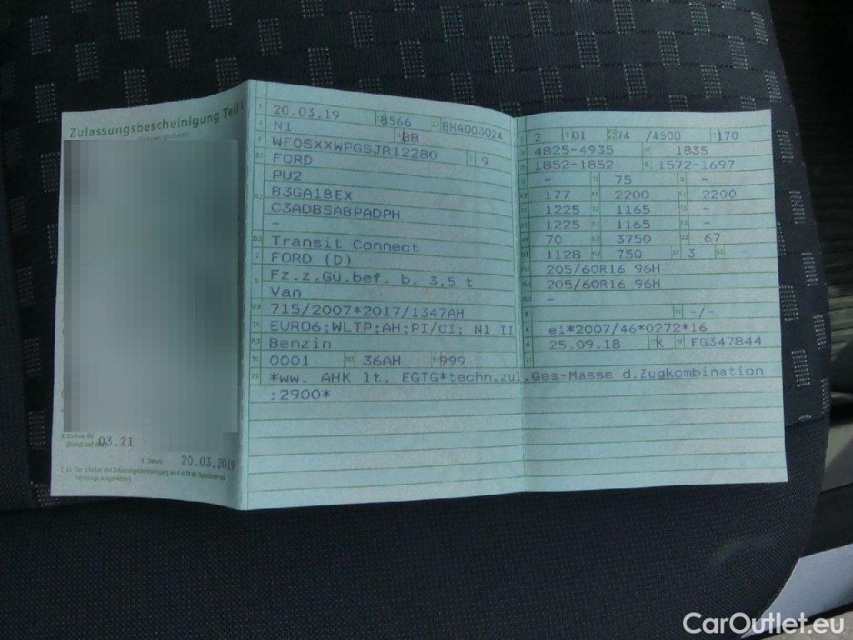 Zulassungsbescheinigung Teil I
03.21
20.03.2019
20.03.19 8566 BHA003024
N1 BB
WF0SXXWPGSJR12280 9
FORD
PU2
B3GA1BEX
C3ADBSABPADPH
-
Transit Connect
FORD (D)
Fz.z.Gü.bef. b. 3,5 t
Van
715/2007*2017/1347AH
EURO6;WLTP;AH;PI/CI; N1 II
Benzin
0001 36AH 999
*ww. AHK lt. EGTG*techn.zul.Ges-Masse d.Zugkombination
:2900*
2 01 74 /4500 170
4825-4935 1835
1852-1852 1572-1697
- 75 -
177 2200 2200
1225 1165 -
1225 1165 -
70 3750 67
1128 750 3 -
205/60R16 96H
205/60R16 96H
-
- -/-
e1*2007/46*0272*16
25.09.18 K FG347844
CarOutlet.eu